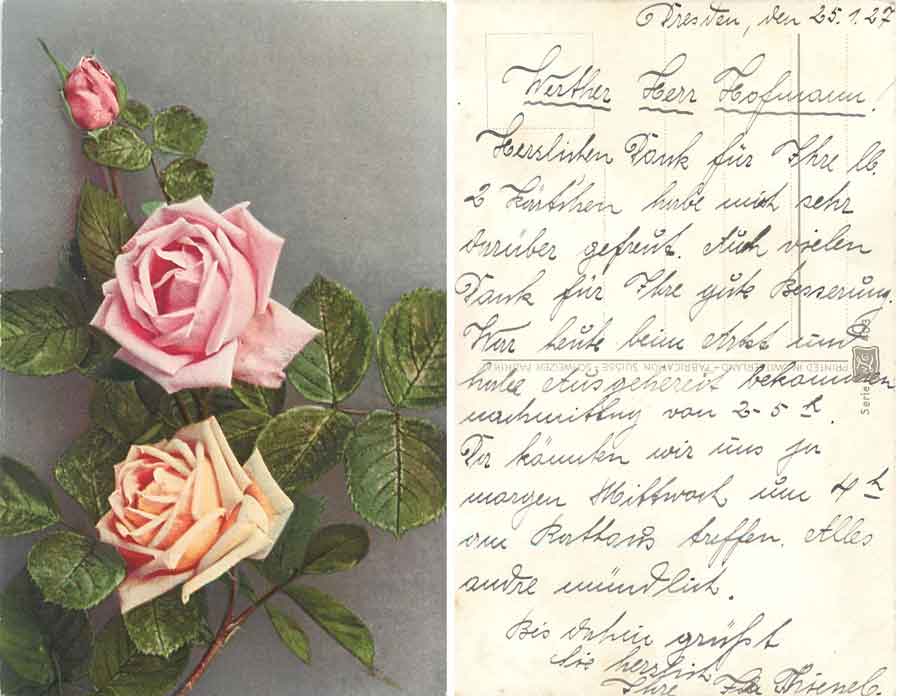 Dresden, den 25.1.27
Werther Herr Hofmann!
Herzlichen Dank für Ihre lb.
2 Kärtchen habe mich sehr
darüber gefreut. Auch vielen
Dank für Ihre gute Besserung.
War heute beim Arzt und
habe Ausgehezeit bekommen
nachmittag von 2-5 h.
Da könnten wir uns ja
morgen Mittwoch um 4 h
am Rathaus treffen. Alles
andre mündlich.
Bis dahin grüßt
Sie herzlich
Ihre
PRINTED IN SWITZERLAND – FABRICATION SUISSE – SCHWEIZER FABRIKAT
Serie